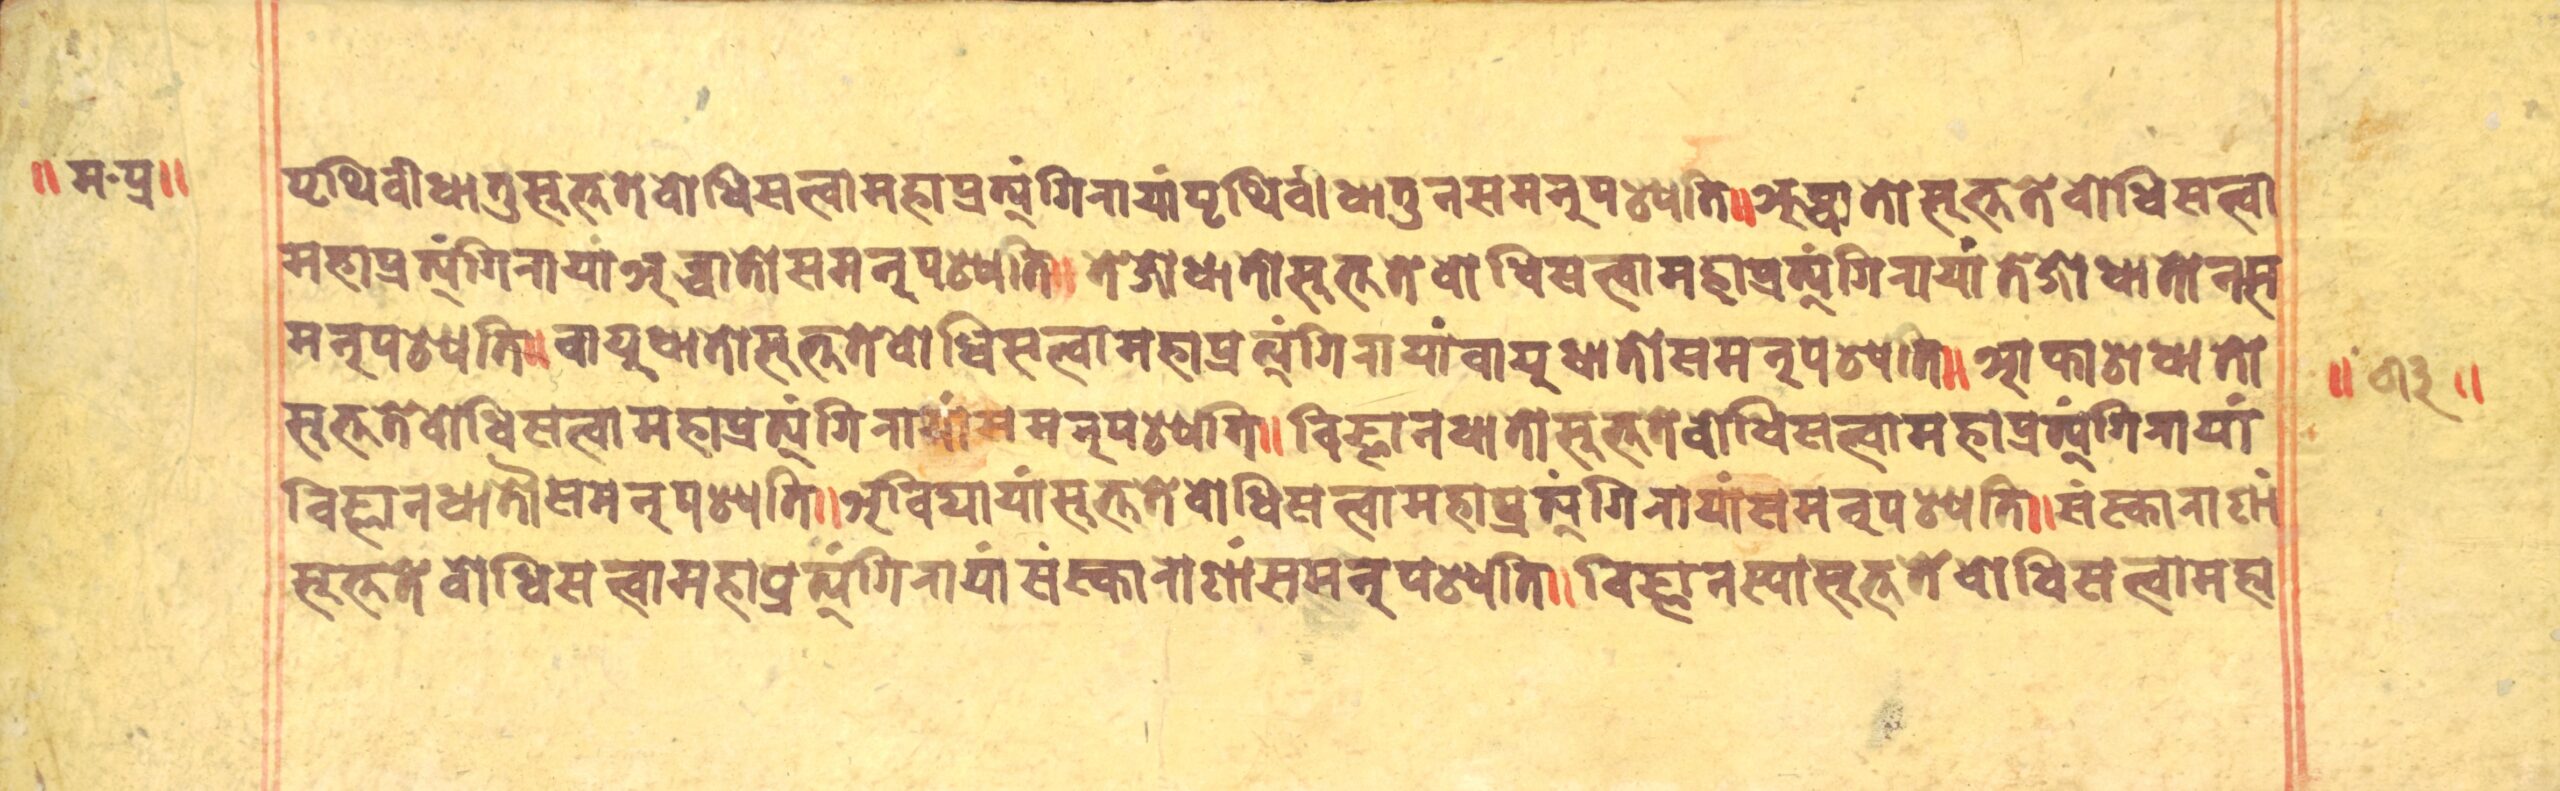 ॥ म·प्र॥
पृथिवीधातुसूक्ततेवोधिसत्वामहाप्रत्यंगिनायांपृथिवीधातुनसमनुपश्येति॥अब्धातोसूक्ततेवोधिसत्वा
महाप्रत्यंगिनायांअब्धातोसमनुपश्येति॥ तेजोधातोसूक्ततेवोधिसत्वामहाप्रत्यंगिनायांतेजोधातोनस
मनुपश्येति॥वायुधातोसूक्ततेवोधिसत्वामहाप्रत्यंगिनायांवायुधातोसमनुपश्येति॥आकाशधातो
॥ ॥
सूक्ततेवोधिसत्वामहाप्रत्यंगिनायांसमनुपश्येति॥ विज्ञानधातोसूक्ततेवोधिसत्वामहाप्रत्यंगिनायां
विज्ञानधातौसमनुपश्यति॥अविद्यायांसूक्ततेवोधिसत्वामहाप्रत्यंगिनायांसमनुपश्येति॥संस्कानाणां
सूक्ततेवोधिसत्वामहाप्रत्यंगिनायांसंस्कानाणांसमनुपश्येति॥ विज्ञानस्यासूक्ततेवोधिसत्वामहा